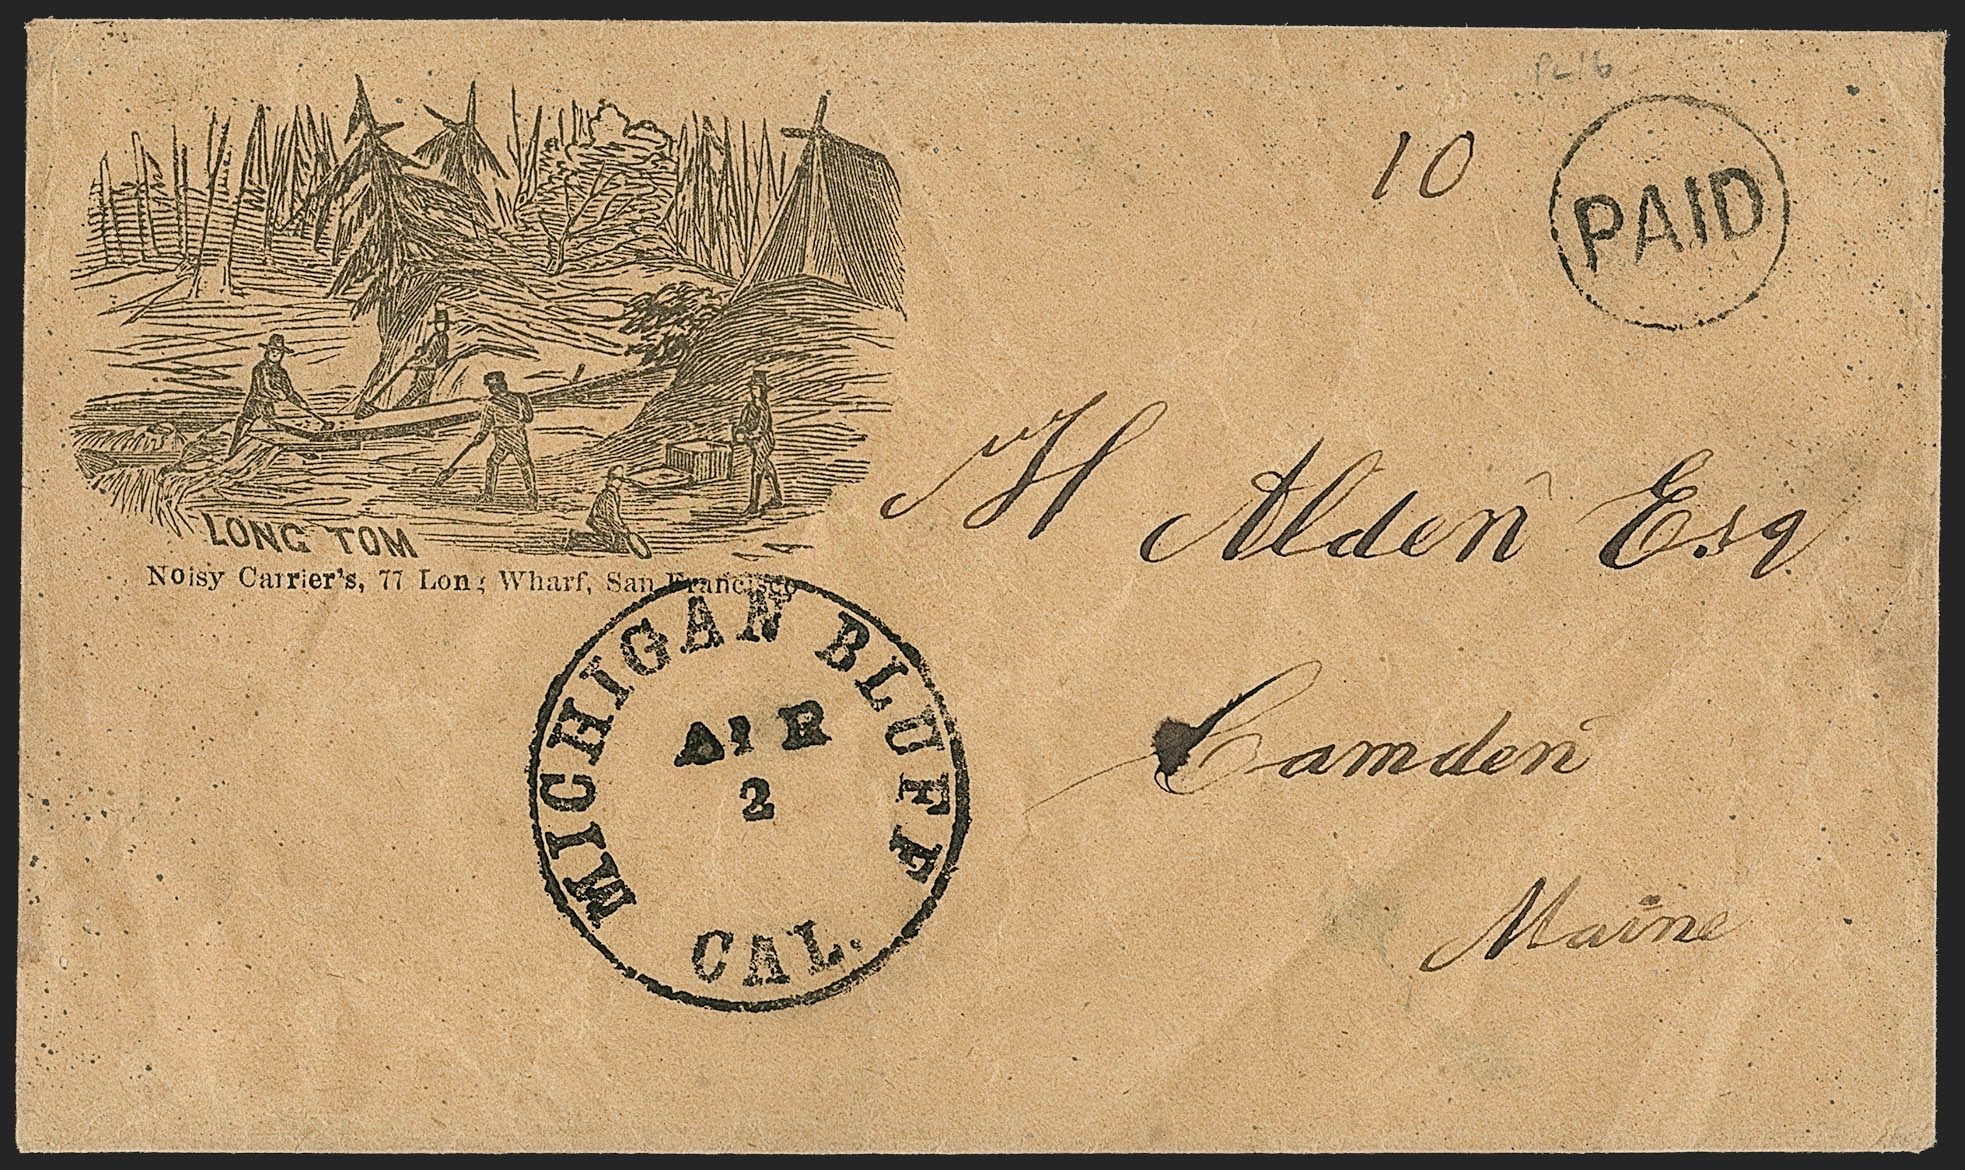 PC16
10
PAID
LONG TOM
Noisy Carrier's, 77 Long Wharf, San Francisco
H Alden Esq
Camden
Maine
MICHIGAN BLUFF
APR
2
CAL.